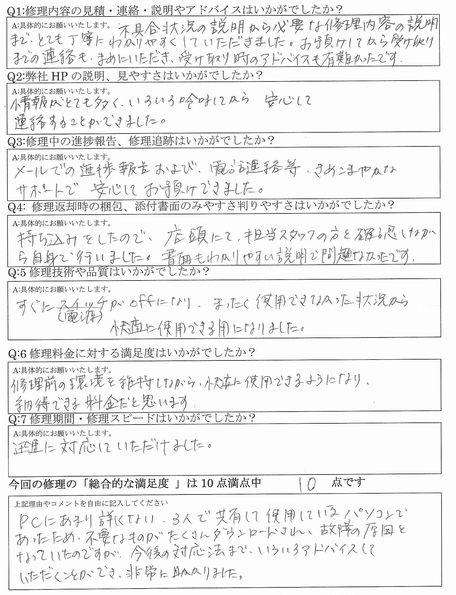 Q1:修理内容の見積・連絡・説明やアドバイスはいかがでしたか？
A:具体的にお願いいたします。 不具合状況の説明から必要な修理内容の説明
まで、とても丁寧にわかりやすくしていただきました。お預けしてから受け取り
までの連絡も、きめにいただき、受け取り時のアドバイスも有難かったです。
Q2:弊社 HP の説明、見やすさはいかがでしたか？
A:具体的にお願いいたします。
情報がとても多く、いろいろ吟味してから 安心して
連絡することができました。
Q3:修理中の進捗報告、修理追跡はいかがでしたか？
A:具体的にお願いいたします。
メールでの進捗報告および、電話連絡等、きめこまやかな
サポートで 安心してお預けできました。
Q4: 修理返却時の梱包、添付書面のみやすさ判りやすさはいかがでしたか？
A:具体的にお願いいたします。
持ち込みをしたので、店頭にて、担当スタッフの方と確認しなが
ら自身で行いました。書面もわかりやすい説明で問題なかったです。
Q:5 修理技術や品質はいかがでしたか？
A:具体的にお願いいたします。
すぐにスイッチがoffになり、まったく使用できなかった状況から
(電源)
快適に使用できる用になりました。
Q:6 修理料金に対する満足度はいかがでしたか？
A:具体的にお願いいたします。
修理前の環境を維持しながら、快適に使用できるようになり、
納得できる料金だと思います。
Q:7 修理期間・修理スピードはいかがでしたか？
A:具体的にお願いいたします。
迅速に対応していただけました。
今回の修理の「総合的な満足度 」は 10 点満点中 10 点です
上記理由やコメントを自由に記入してください
PCにあまり詳しくない、3人で共有して使用しているパソコンで
あったため、不要なものがたくさんダウンロードされ、故障の原因と
なっていたのですが、今後の対応法まで、いろいろアドバイスして
いただくことができ、非常に助かりました。